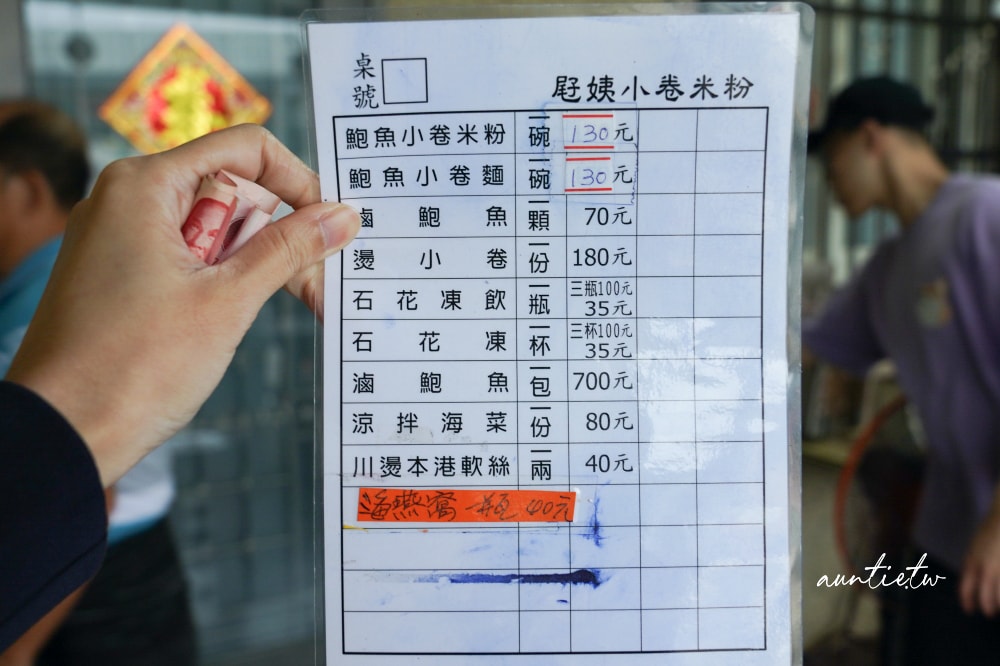 桌號
屘姨小卷米粉
鮑魚小卷米粉 一碗 130元
鮑魚小卷麵 一碗 130元
滷鮑魚 一顆 70元
燙小卷 一份 180元
石花凍飲 一瓶 三瓶100元 35元
石花凍 一杯 三杯100元 35元
滷鮑魚 一包 700元
涼拌海菜 一份 80元
川燙本港軟絲 一兩 40元
海燕窩 一瓶 40元
auntie.tw